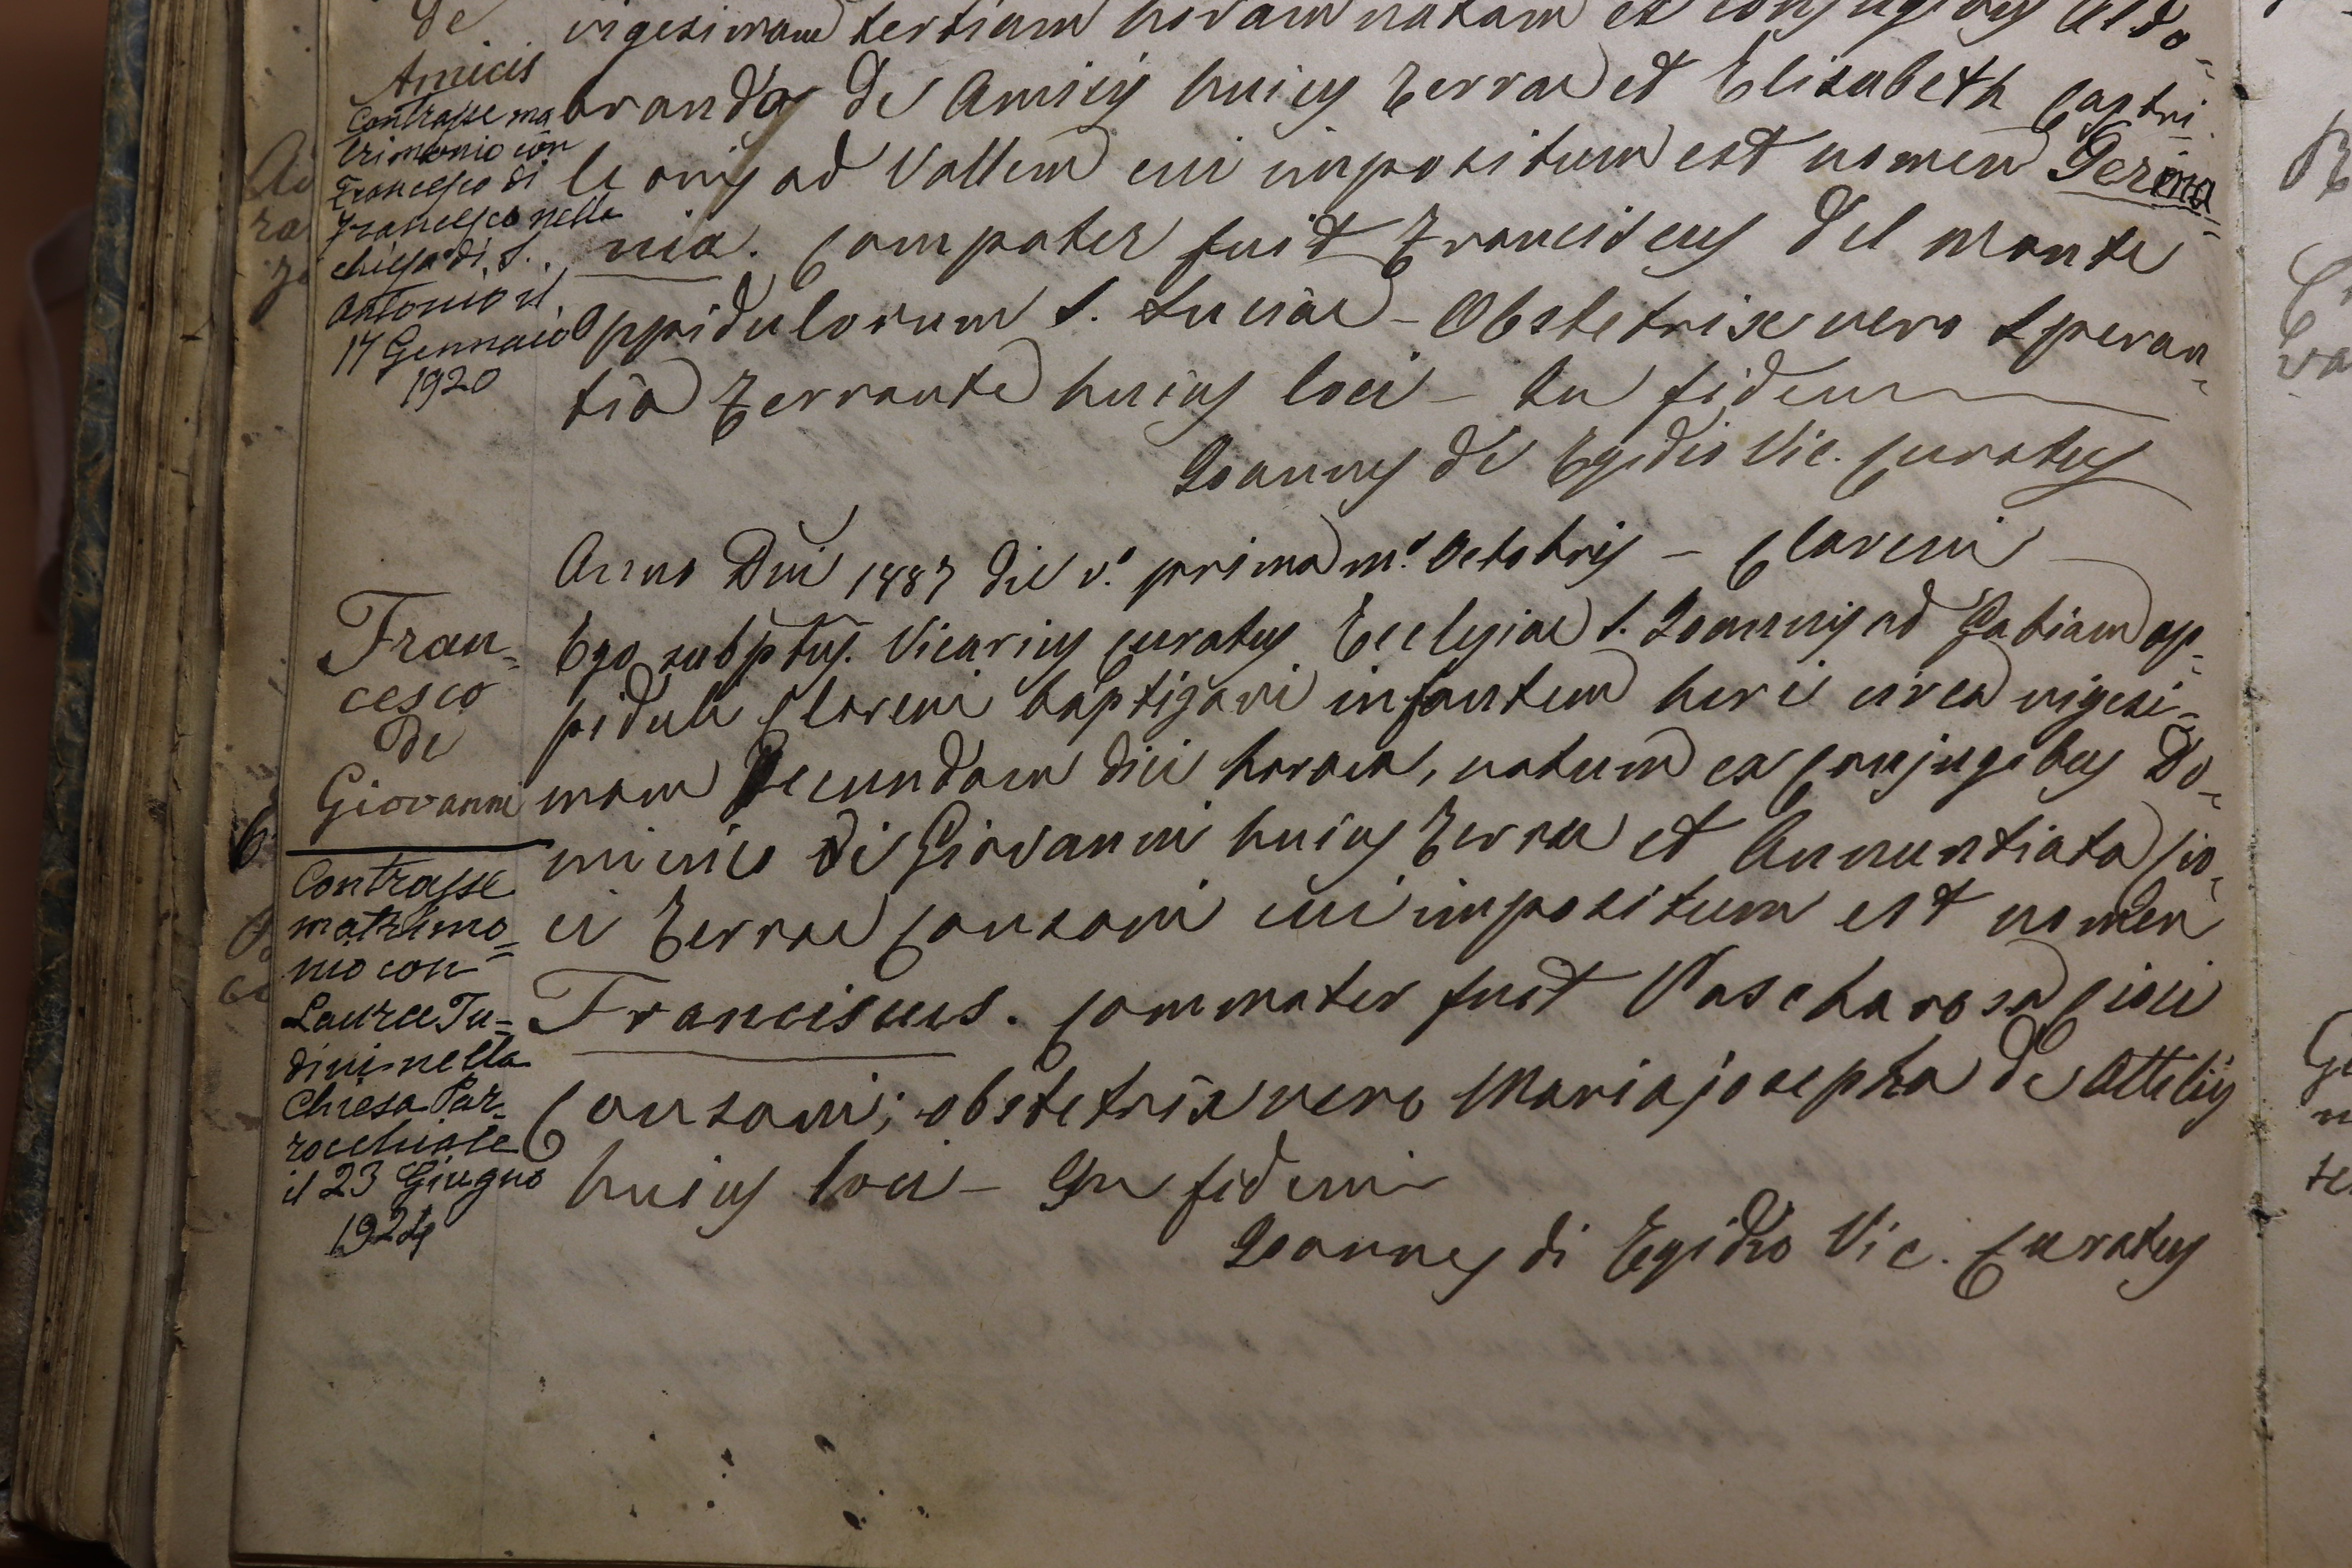 de
Amicis
Contrasse ma
trimonio con
Francesco di
Francesco nella
chiesa di S.
Antonio il
17 Gennaio
1920
vigesimam tertiam horam natam ex conjugibus Aldo-
brando de Amicis huius Terrae et Elisabeth Castri
leonis ad Vallem cui impositum est nomen Germa-
nia. Compater fuit Franciscus Del Monte
Oppidulorum S. Luciae - Obstetrix vero Speran-
tia Ferrante huius loci - In fidem
Joannes de Egidio Vic. Curatus
Fran-
cesco
de
Giovanni
Contrasse
matrimo-
nio con
Laura Tu-
dini nella
Chiesa Par-
rocchiale
il 23 Giugno
1924
Anno Dni 1887 die v.° prima m.° Octobris - Clareni
Ego subptus. Vicarius curatus Ecclesiae S. Joannis ad Gabiam op-
piduli Clareni baptizavi infantem heri circa vigesi-
mam secundam diei horam, natum ex Conjugibus Do-
minico di Giovanni huius Terrae et Annuntiata Cio-
ci Terrae Cansani cui impositum est nomen
Franciscus. Commater fuit Pascharosa Cioci
Cansani; obstetrix vero Mariajosepha de Attiliis
huius loci - In fidem
Joannes di Egidio Vic. Curatus